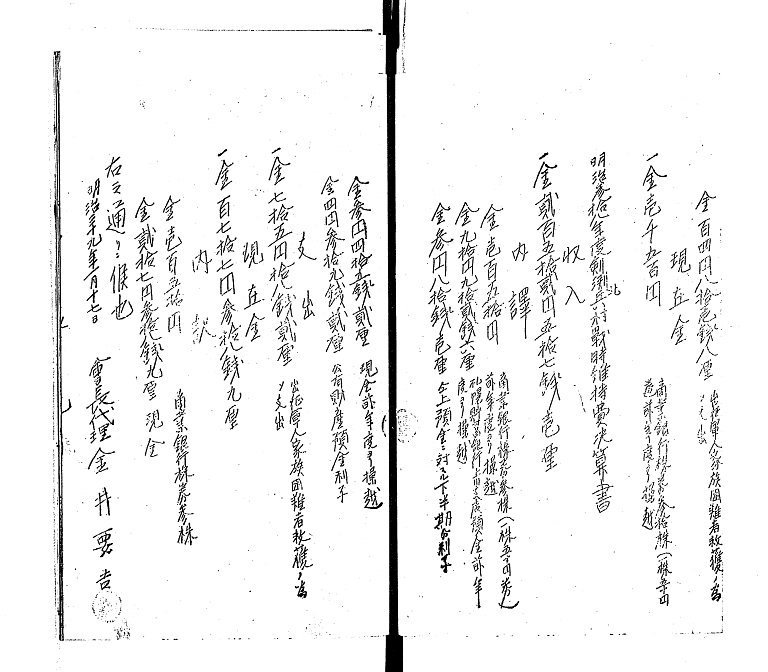 金百四円八拾壱銭八厘 出征軍人家族困難者救護ノ為
メ支出
現在金
一金壱千九百円 商業銀行株券参拾株(一株五十円
前年度ヨリ繰越
明治参拾 年度 村戦時維持費決算書
収入
一金貳百五拾貳円五拾七銭壱厘
内譯
金壱百五拾円 商業銀行株券参株(一株五十円券)
前年度ヨリ繰越
金九拾四円九拾貳銭六厘 銀行 預金前年
度ヨリ繰越
金参円八拾銭壱厘 仝上預金ニ対スル下半期分利子
金参円四拾五銭貳厘 現金前年度ヨリ繰越
金四円参拾九銭貳厘 公有財産預金利子
支出
一金七拾五円拾八銭貳厘 出征軍人家族困難者救護ノ為
メ支出
現在金
一金百七拾七円参拾八銭九厘
内訳
金壱百五拾円 商業銀行株券参株
金貳拾七円参拾八銭九厘 現金
右之通ニ候也
明治 九年 月十七日
會長代理 金井要吉